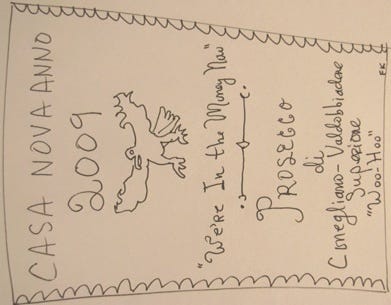 CASA NOVA ANNO
2009
"We're In the Money Now"
PROSECCO
di
Conegliano-Valdobbiadene
Superiore
"Woo-Hoo"
FK